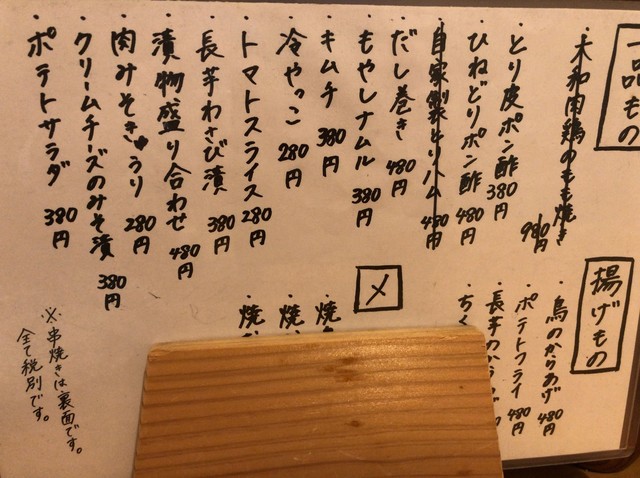 一品もの
・大和肉鶏のもも焼き 980円
・とり皮ポン酢 380円
・ひねどりポン酢 480円
・自家製とりハム 480円
・だし巻き 480円
・もやしナムル 380円
・キムチ 380円
・冷やっこ 280円
・トマトスライス 280円
・長芋わさび漬 380円
・漬物盛り合わせ 480円
・肉みそきゅうり 280円
・クリームチーズのみそ漬 380円
・ポテトサラダ 380円
揚げもの
・鳥のからあげ 480円
・ポテトフライ 480円
・長芋のから
・ちく
〆
・焼
・焼
・焼
※串焼きは裏面です。
全て税別です。